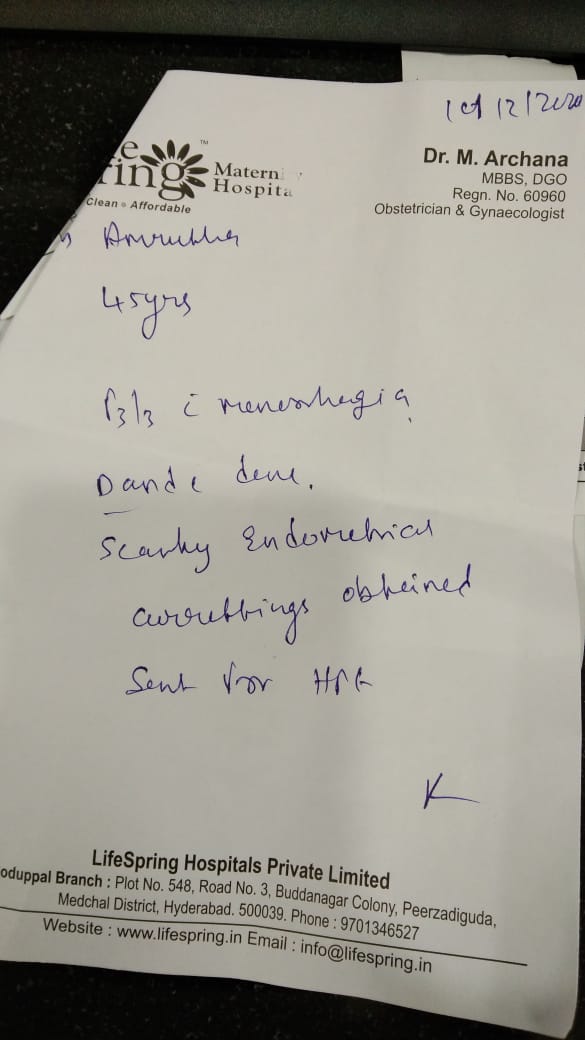 12/2020
e
ring
TM
Matern y
Hospita
Clean • Affordable
Dr. M. Archana
MBBS, DGO
Regn. No. 60960
Obstetrician & Gynaecologist
45yrs
P3l3 c menorrhagia
D and c done.
Scanty Endometrial
curettings obtained
Sent for HPE
LifeSpring Hospitals Private Limited
oduppal Branch : Plot No. 548, Road No. 3, Buddanagar Colony, Peerzadiguda,
Medchal District, Hyderabad. 500039. Phone : 9701346527
Website : www.lifespring.in Email : info@lifespring.in